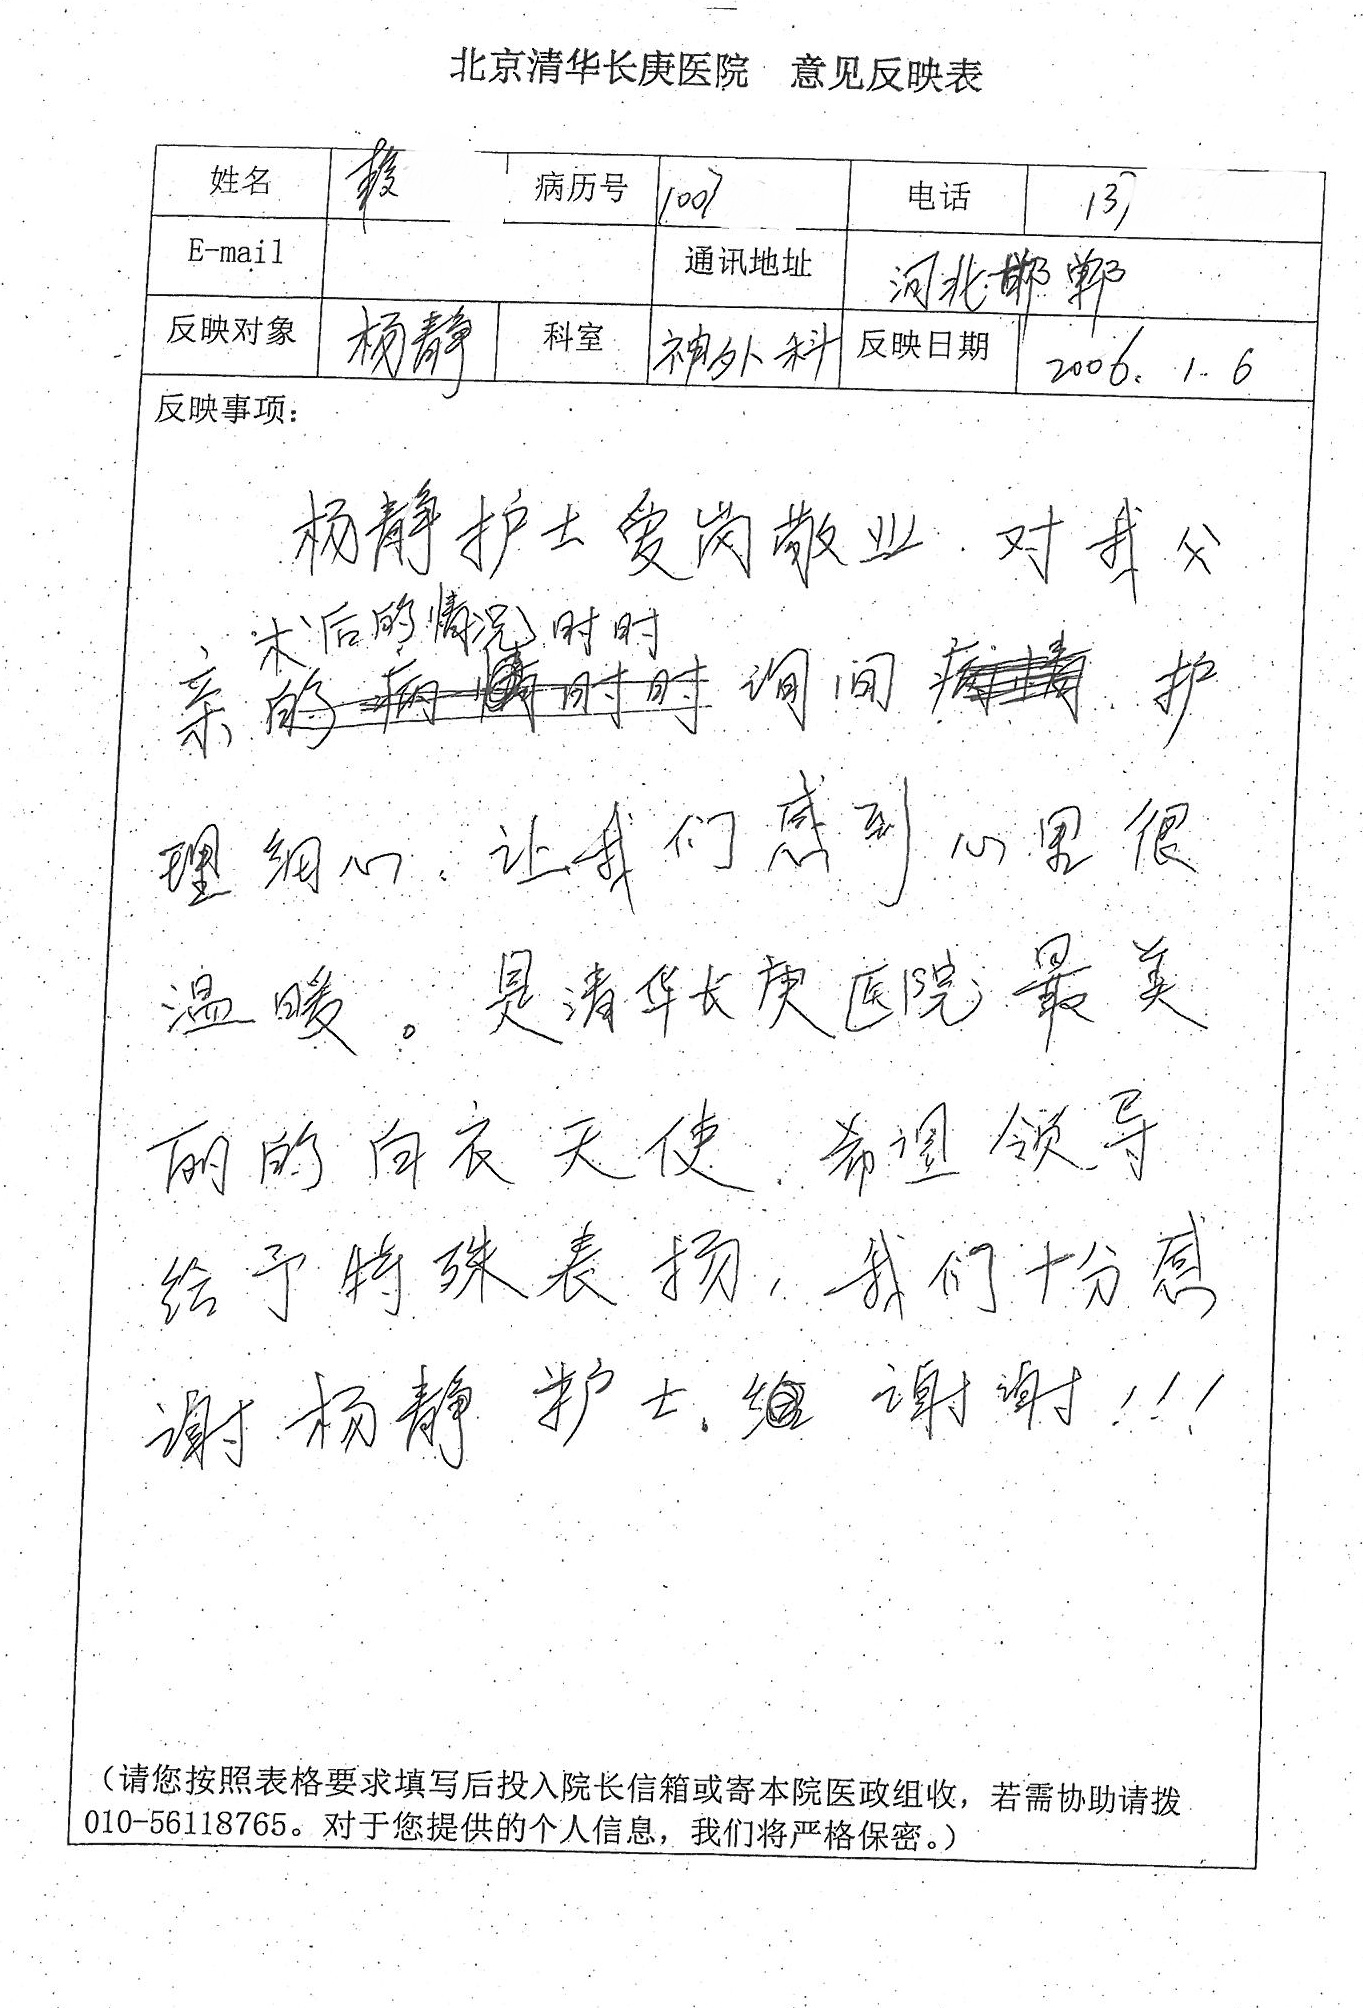 北京清华长庚医院 意见反映表
姓名 病历号 1007 电话 13
E-mail 通讯地址 河北邯郸
反映对象 杨静 科室 神外科 反映日期 2006.1.6
反映事项：
杨静护士爱岗敬业.对我父
术后的情况时时
亲的病情时时询问病情.护
理细心.让我们感到心里很
温暖。是清华长庚医院最美
丽的白衣天使.希望领导
给予特殊表扬，我们十分感
谢杨静护士.谢谢!!!
（请您按照表格要求填写后投入院长信箱或寄本院医政组收，若需协助请拨
010-56118765。对于您提供的个人信息，我们将严格保密。）